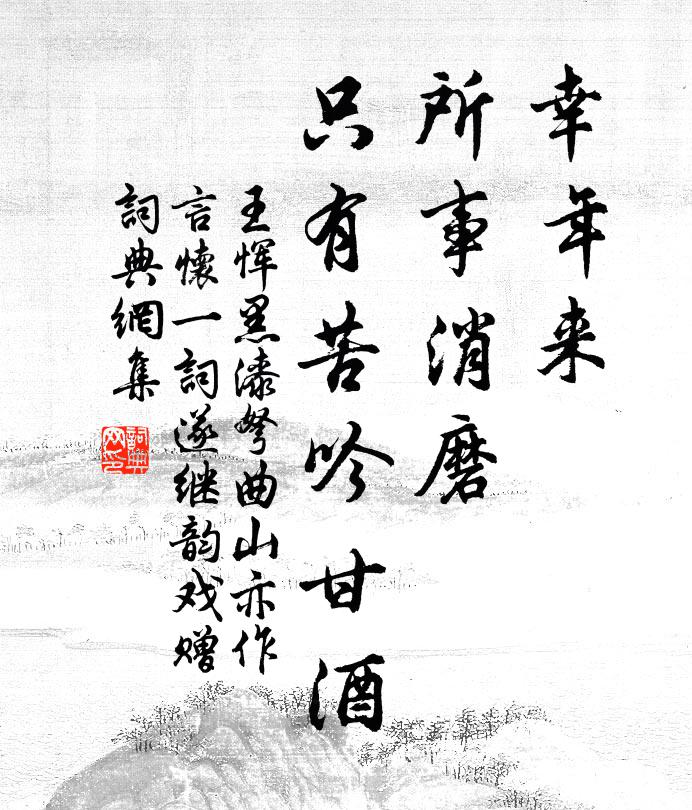 幸年来
所事消磨
只有苦吟甘酒
王恽黑漆弩曲山亦作
言懷一詞遂继韵戏赠
詞典網集